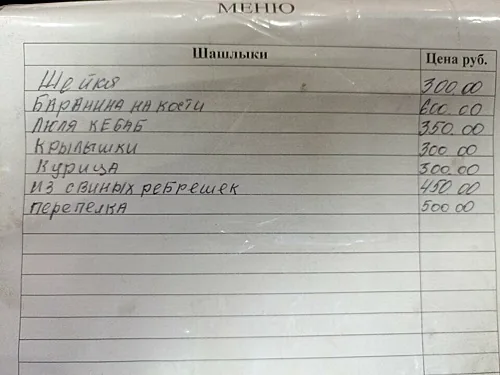 МЕНЮ
Шашлыки Цена руб.
Шейка 300.00
БАРАНИНА НА КОСТИ 600.00
ЛЮЛЯ КЕБАБ 350.00
КРЫЛЫШКИ 300.00
КУРИЦА 300.00
ИЗ СВИНЫХ РЕБРЕШЕК 450.00
ПЕРЕПЕЛКА 500.00